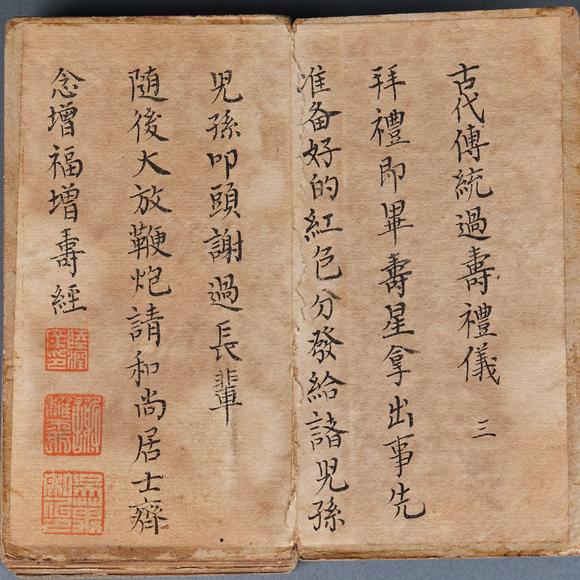 古代傳統過壽禮儀 三
拜禮即畢壽星拿出事先
准备好的紅色分發給諸兒孫
兒孫叩頭謝過長輩
随後大放鞭炮請和尚居士齊
念增福增壽經